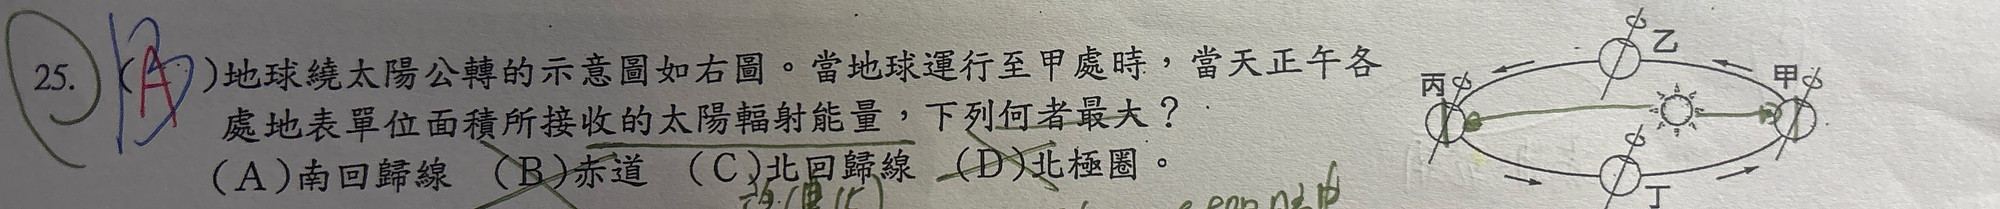 25. (A)地球繞太陽公轉的示意圖如右圖。當地球運行至甲處時，當天正午各
處地表單位面積所接收的太陽輻射能量，下列何者最大？
(A)南回歸線 (B)赤道 (C)北回歸線 (D)北極圈。
乙
丙
甲
丁